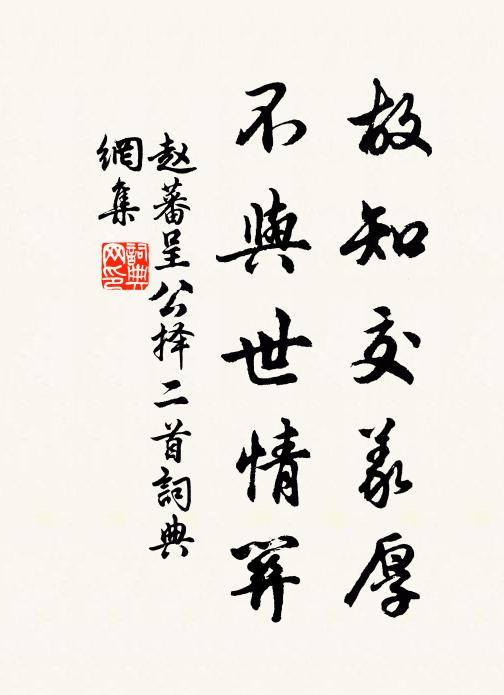 故知交義厚
不與世情
赵蕃呈公择二首詞典
網集
詞典
网印